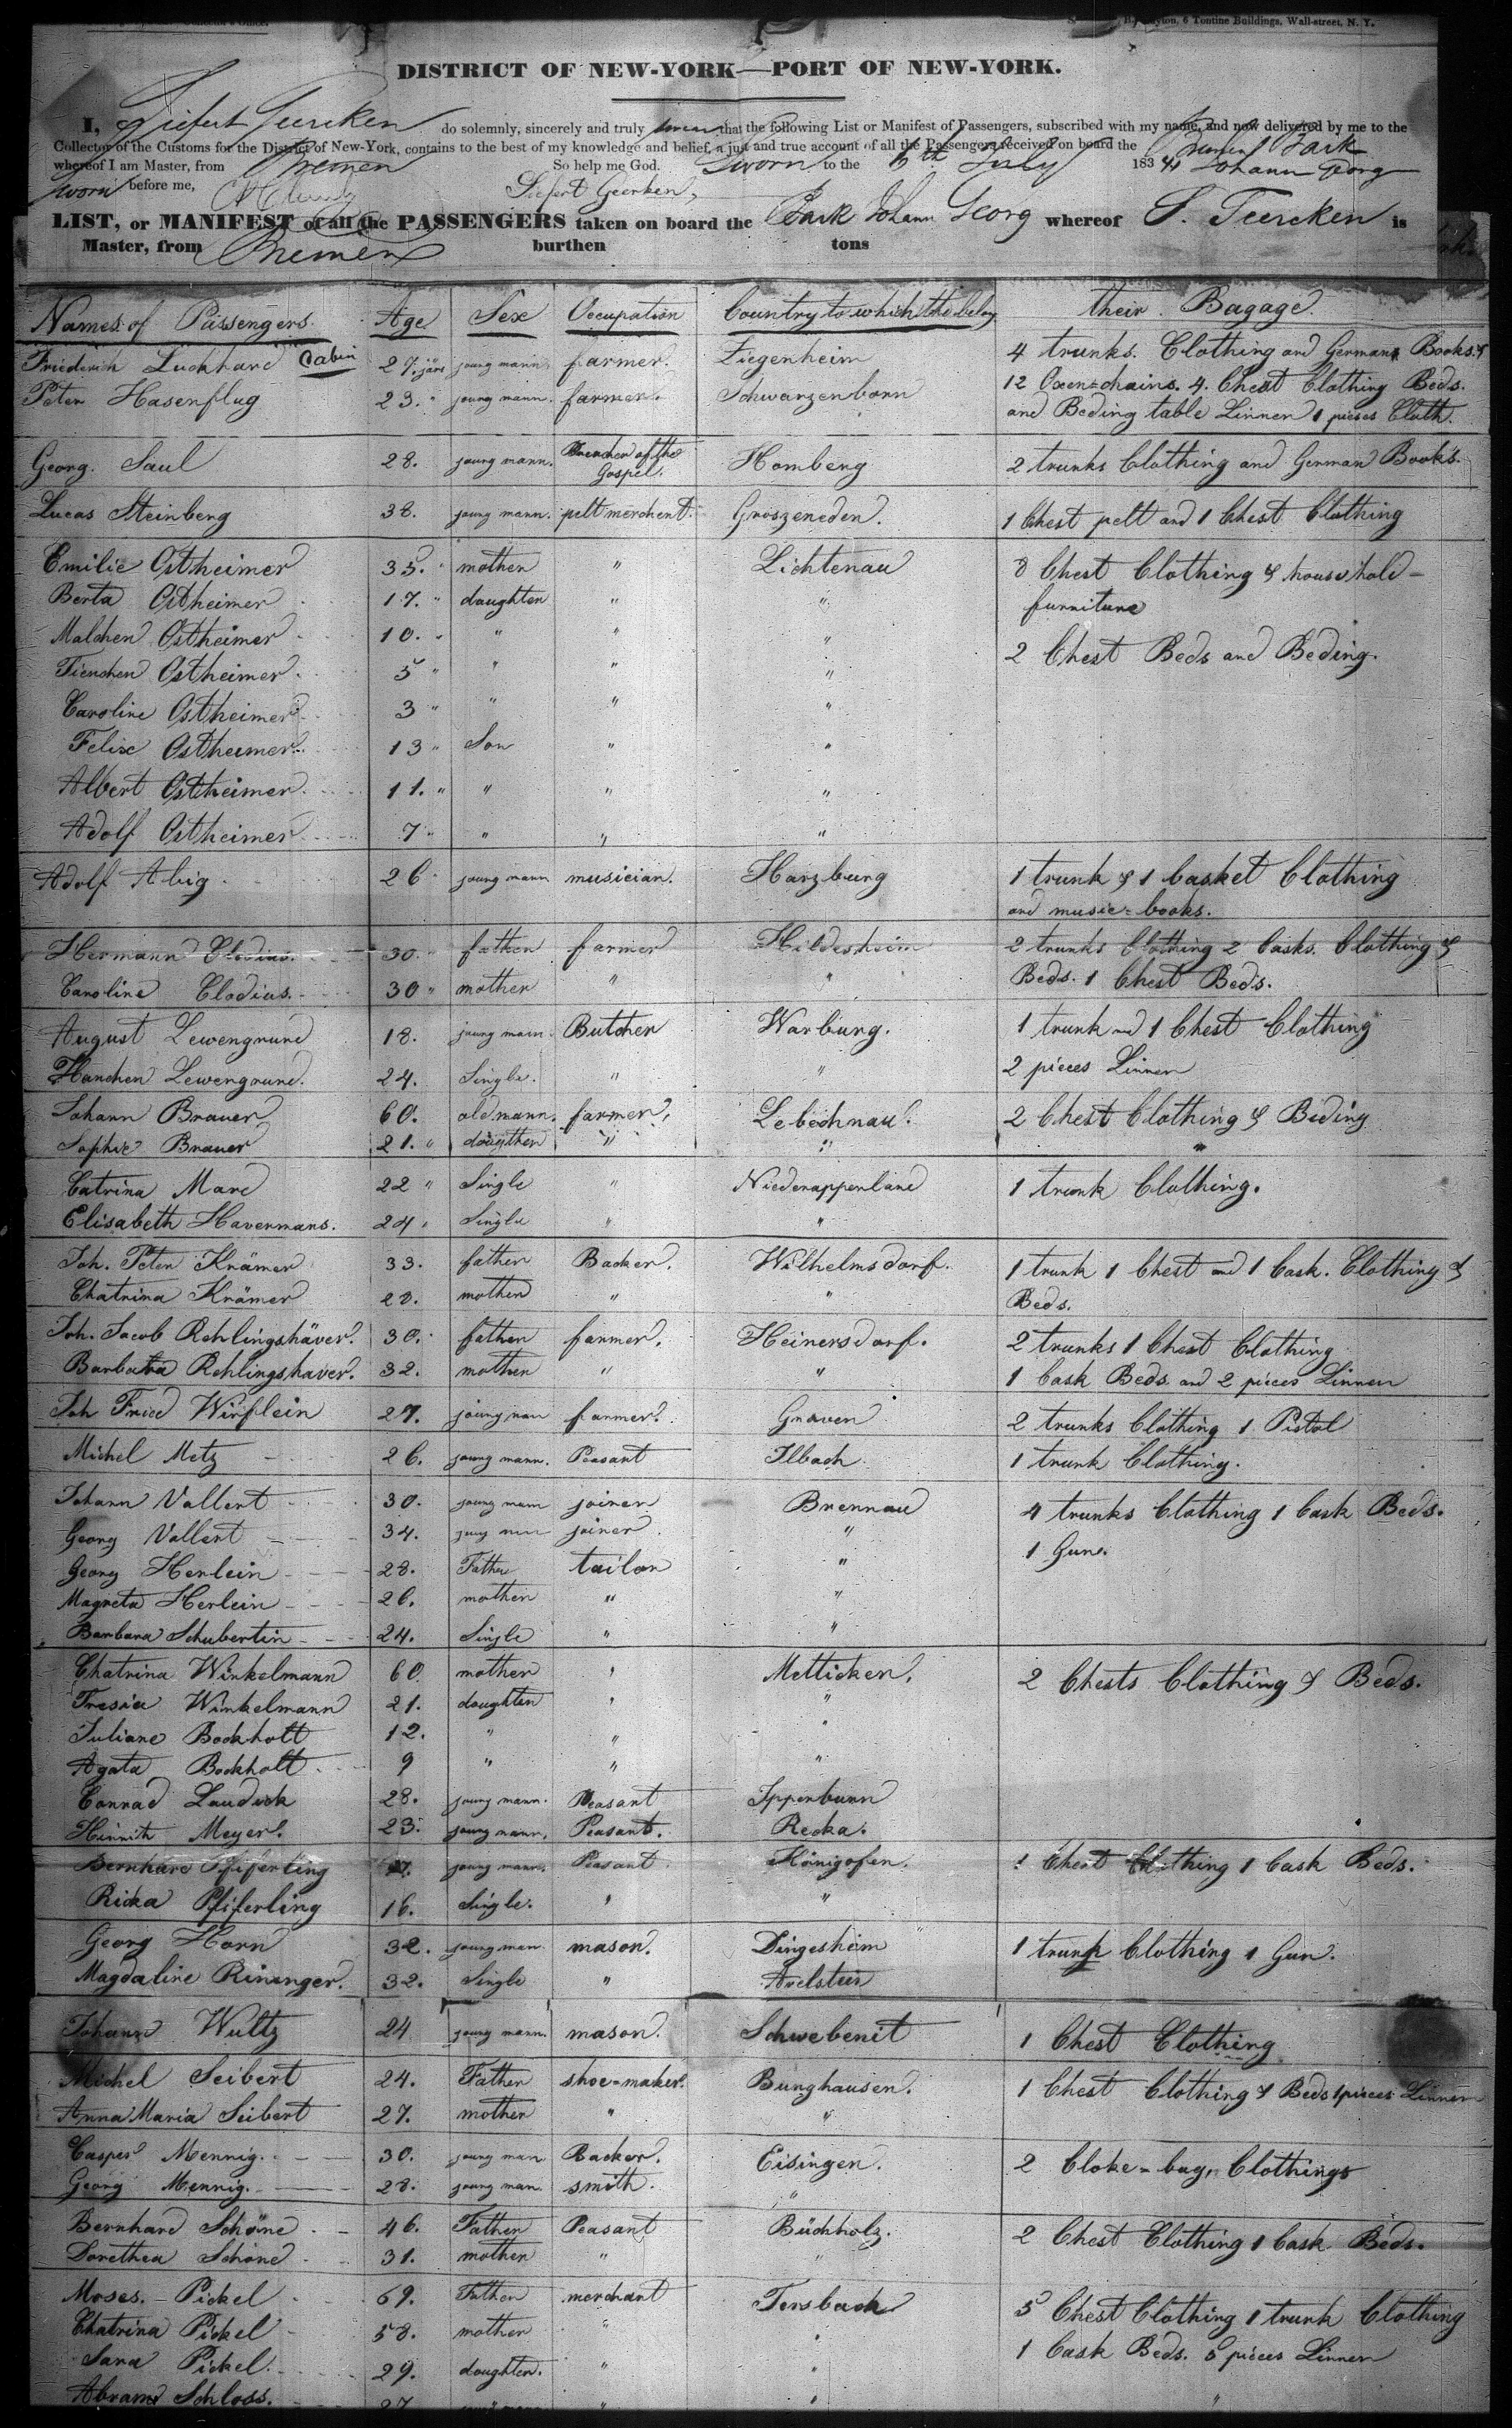 Clayton, 6 Tontine Buildings, Wall-street, N. Y.
DISTRICT OF NEW-YORK—PORT OF NEW-YORK.
I, do solemnly, sincerely and truly that the following List or Manifest of Passengers, subscribed with my name, and now delivered by me to the
Collector of the Customs for the District of New-York, contains to the best of my knowledge and belief, a just and true account of all the Passengers received on board the Bremen Bark
whereof I am Master, from Bremen So help me God. Sworn to the July 183 Johann Georg
Sworn before me, Geerken,
LIST, or MANIFEST of all the PASSENGERS taken on board the Bark Johann Georg whereof is
Master, from Bremen burthen tons
Names of Passengers. Age Sex Occupation Country to which the belong their Bagage.
Friederich Luckhard Cabin 27 young mann farmer. Ziegenheim 4 trunks. Clothing and German Books. &
Peter Hasenflug 23. " young mann. farmer. Schwarzenborn 12 Oxen=chains. 4. Chest Clothing Beds.
and Beding table Linnen 1 pieses Cloth.
Georg. Saul 28. young mann. Preacher of the Gospel. Homberg 2 trunks Clothing and German Books.
Lucas Steinberg 38. young mann. pelt merchent. Groszeneden. 1 Chest pelt and 1 Chest Clothing
Emilie Ostheimer 35. " mother " Lichtenau Chest Clothing & household-
Berta Ostheimer 17. " daughter " " furniture
Malchen Ostheimer 10. " " " " 2 Chest Beds and Beding.
Fienchen Ostheimer. 5 " " " "
Caroline Ostheimer 3 " " " "
Felix Ostheimer. 13 " Son " "
Albert Ostheimer 11. " " " "
Adolf Ostheimer 7 " " " "
Adolf Abig 26 " young mann musician. Harzburg 1 trunk & 1 basket Clothing
and music=books.
Hermann Clodius. 30. " father farmer Hildesheim 2 trunks Clothing 2 Casks. Clothing &
Caroline Clodius. 30 " mother " " Beds. 1 Chest Beds.
August Lewengrund 18. young mann. Butcher Warburg. 1 trunk and 1 Chest Clothing
Hanchen Lewengrund. 24. Single. " " 2 pieces Linnen
Johann Brauer 60. old mann. farmer. Lebechnau. 2 Chest Clothing & Beding
Sophie Brauer 21. " doughter " " "
Catrina Mard 22 " Single " Niederappenland 1 trunk Clothing.
Elisabeth Havermans. 24 " Single " "
Joh. Peter Krämer 33. father Backer. Wilhelmsdorf. 1 trunk 1 Chest and 1 Cask. Clothing &
Chatrina Krämer mother " " Beds.
Joh. Jacob Rehlingshäver. 30. father farmer. Heinersdorf. 2 trunks 1 Chest Clothing
Barbara Rehlingshaver. 32. mother " " 1 Cask Beds and 2 pieces Linnen
Joh Fried Wirflein 27. young man farmer. Graven 2 trunks Clothing 1 Pistol
Michel Metz 26. young mann. Peasant Ilbach 1 trunk Clothing.
Johann Vollert 30. young mann joiner Brennau 4 trunks Clothing 1 Cask Beds.
Georg Vollert 34. young man joiner " 1 Gun.
Georg Herlein 28. Father tailor "
Magreta Herlein 26. mother " "
Barbara Schubertin 24. Single " "
Chatrina Winkelmann 60 mother " Metticken. 2 Chests Clothing & Beds.
Tresia Winkelmann 21. doughter " "
Juliane Bockholt 12. " " "
Agata Bockholt 9 " " "
Conrad Laudick 28. young mann. Peasant Ippenburn
Hinrich Meyer. 23. young mann. Peasant. Recka.
Bernhard Pfiferling young mann. Peasant. Königofen. 1 Chest Clothing 1 Cask Beds.
Ricka Pfiferling 16. Single. " "
Georg Horn 32. young man. mason. Dingesheim 1 trunk Clothing 1 Gun.
Magdaline Rininger. 32. Single " Avelstein
Johann Wultz 24 young mann. mason. Schwebenit 1 Chest Clothing
Michel Seibert 24. Father shoe=maker. Bunghausen. 1 Chest Clothing & Beds 1 pieces Linnen
Anna Maria Seibert 27. mother " "
Casper Mennig. 30. young man. Backer. Eisingen. 2 Cloke=bag, Clothings
Georg Mennig. 28. young man. smith. "
Bernhard Schöne 46. Father Peasant Büchholz. 2 Chest Clothing 1 Cask Beds.
Dorethea Schöne 31. mother " "
Moses. Pickel 69. Father merchant Tersbach 5 Chest Clothing 1 trunk Clothing
Chatrina Pickel 58. mother " " 1 Cask Beds. 6 pieces Linnen
Sara Pickel. 29. doughter. " "
Abram Schloss. 27 young mann " " "